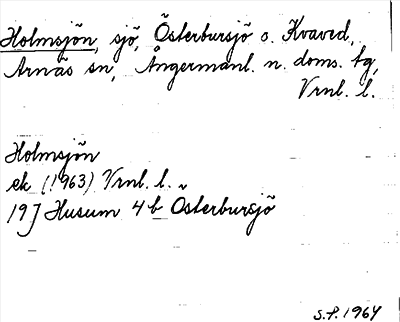 Holmsjön, sjö, Österbursjö o. Kvaved,
Arnäs sn, Ångermanl. n. doms. tg,
Vrnl. l.
Holmsjön
ek (1963) Vrnl. l.
19J Husum 4 b Österbursjö
S.P. 1964